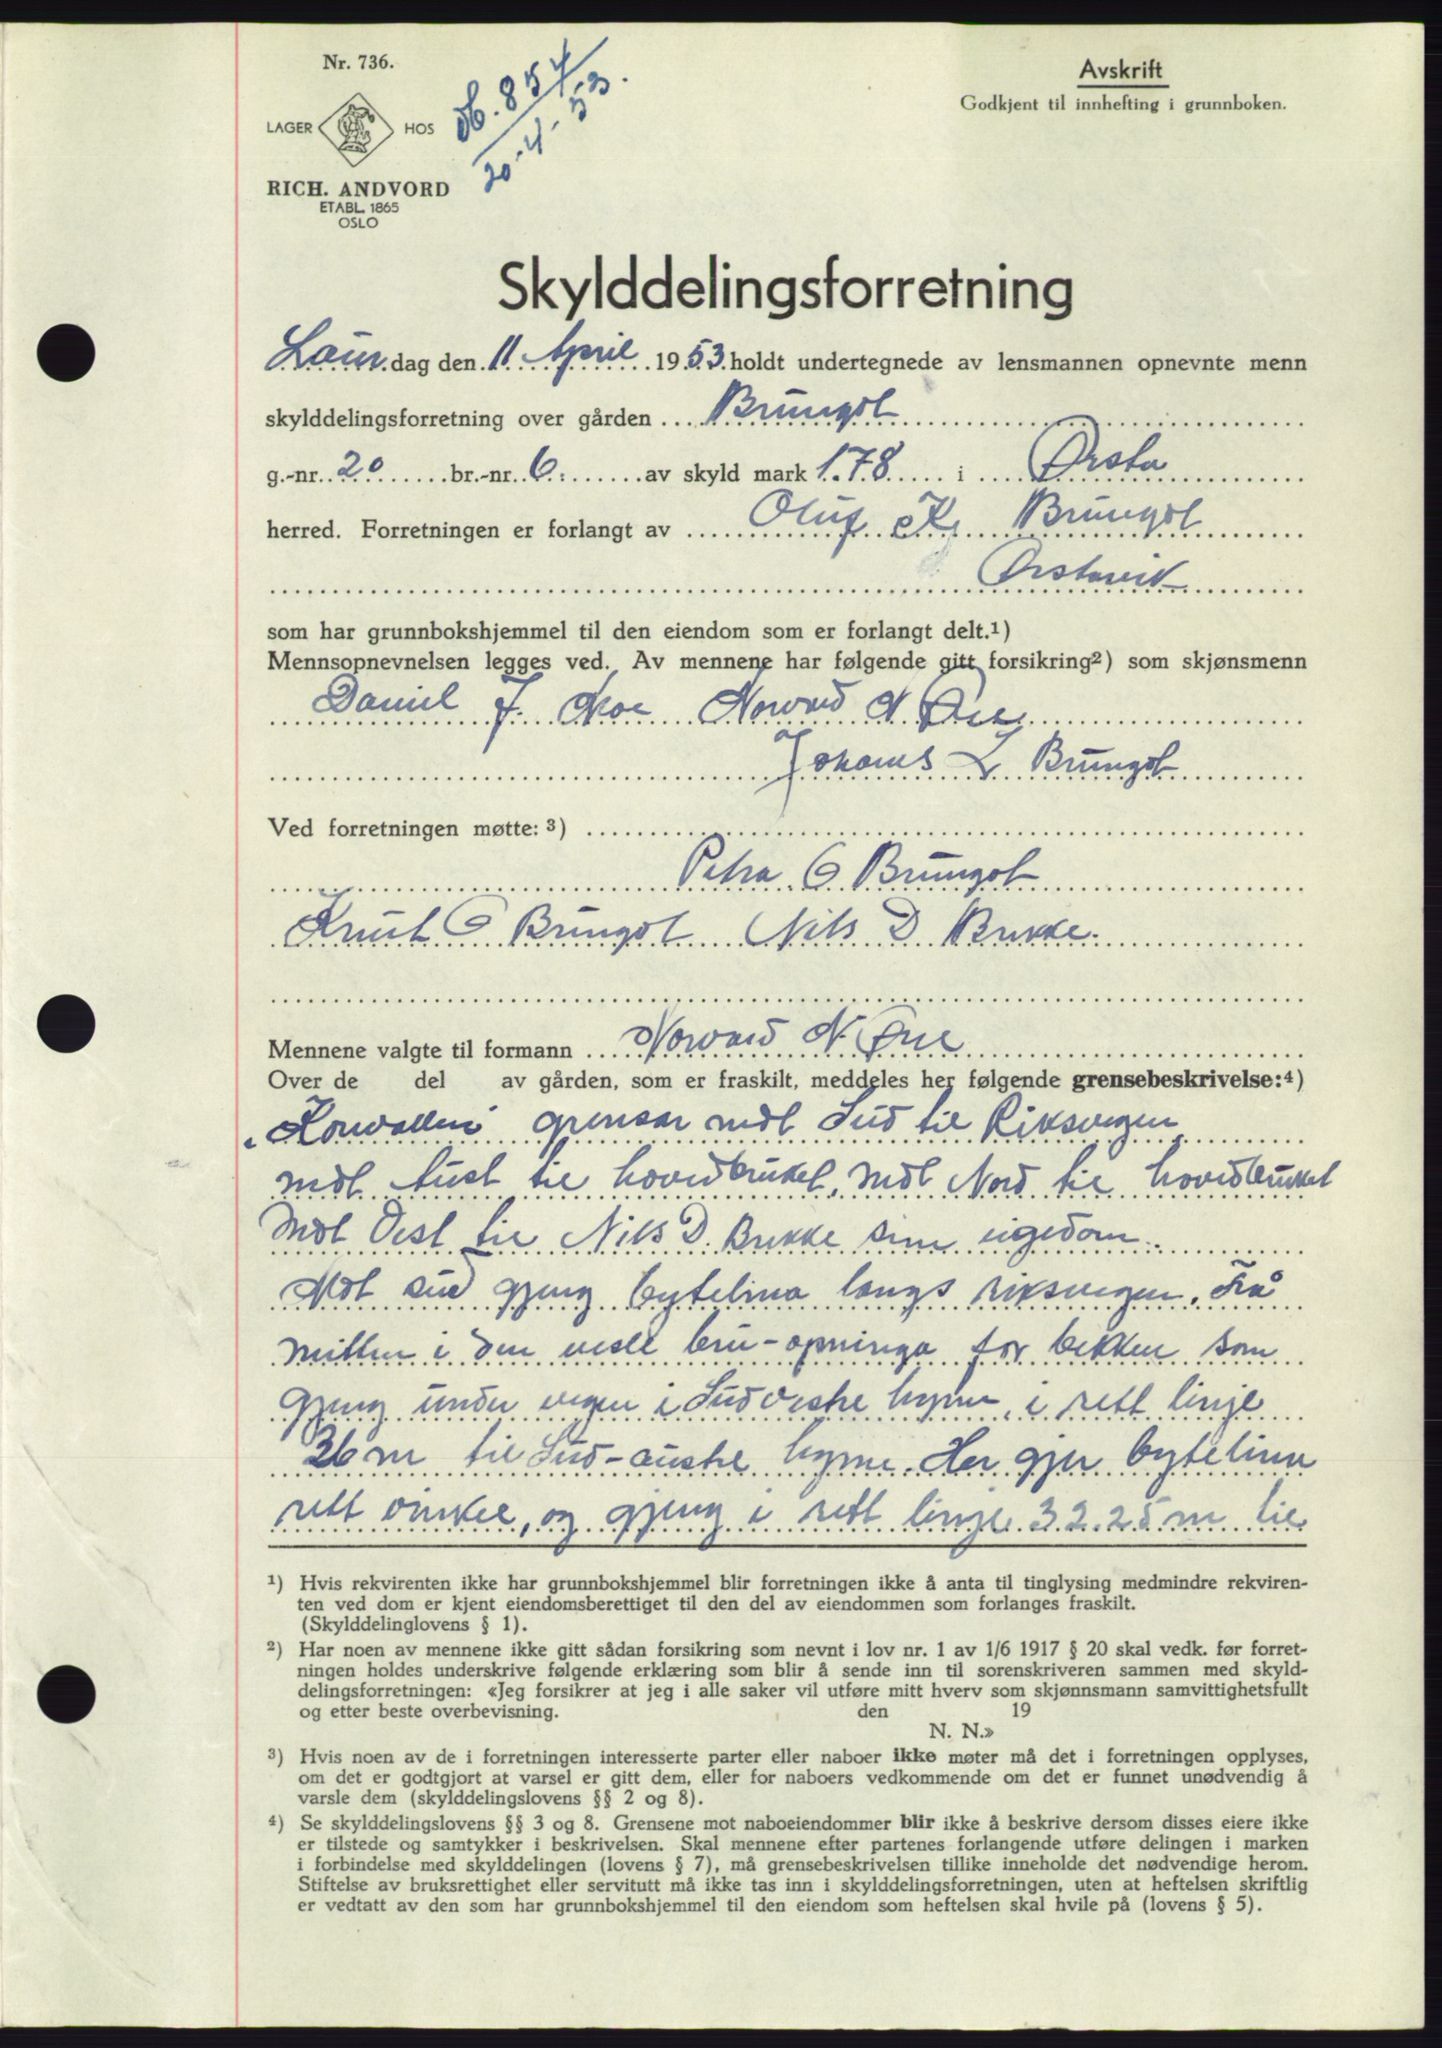 Nr. 736.
Avskrift
Godkjent til innhefting i grunnboken.
db. 854
20-4-53.
LAGER HOS
RICH. ANDVORD
ETABL. 1865
OSLO
Skylddelingsforretning
Laur dag den 11 April 1953 holdt undertegnede av lensmannen opnevnte menn
skylddelingsforretning over gården Brungot
g.-nr. 20 br.-nr. 6. av skyld mark 1.78 i Ørsta
herred. Forretningen er forlangt av Oluf K. Brungot
Ørstavik
som har grunnbokshjemmel til den eiendom som er forlangt delt.¹)
Mennsopnevnelsen legges ved. Av mennene har følgende gitt forsikring²) som skjønsmenn
Daniel J. Moe Norvard N Øye
Johans L Brungot
Ved forretningen møtte: ³)
Petra O Brungot
Knut O Brungot Nils D Brekke.
Mennene valgte til formann Norvard N. Øye
Over de del av gården, som er fraskilt, meddeles her følgende grensebeskrivelse:⁴)
"Konvallen" grensar mot Sud til Riksvegen
mot Aust til hovedbruket, mot Nord til hovedbruket
Mot Vest til Nils D. Brekke sin eigedom.
Mot sud gjeng bytelina langs riksvegen. Frå
mitten i den vesle bru-opninga for bekken som
gjeng under vegen i Sudvestre hyrne, i rett linje
36 m til Sud-austre hyrne. Her gjer bytelina
rett vinkel, og gjeng i rett linje 32.25 m til
¹) Hvis rekvirenten ikke har grunnbokshjemmel blir forretningen ikke å anta til tinglysing medmindre rekviren-
ten ved dom er kjent eiendomsberettiget til den del av eiendommen som forlanges fraskilt.
(Skylddelinglovens § 1).
²) Har noen av mennene ikke gitt sådan forsikring som nevnt i lov nr. 1 av 1/6 1917 § 20 skal vedk. før forret-
ningen holdes underskrive følgende erklæring som blir å sende inn til sorenskriveren sammen med skyld-
delingsforretningen: «Jeg forsikrer at jeg i alle saker vil utføre mitt hverv som skjønnsmann samvittighetsfullt
og etter beste overbevisning. den 19
N. N.»
³) Hvis noen av de i forretningen interesserte parter eller naboer ikke møter må det i forretningen opplyses,
om det er godtgjort at varsel er gitt dem, eller for naboers vedkommende om det er funnet unødvendig å
varsle dem (skylddelingslovens §§ 2 og 8).
⁴) Se skylddelingslovens §§ 3 og 8. Grensene mot naboeiendommer blir ikke å beskrive dersom disses eiere ikke
er tilstede og samtykker i beskrivelsen. Skal mennene efter partenes forlangende utføre delingen i marken
i forbindelse med skylddelingen (lovens § 7), må grensebeskrivelsen tillike inneholde det nødvendige herom.
Stiftelse av bruksrettighet eller servitutt må ikke tas inn i skylddelingsforretningen, uten at heftelsen skriftlig
er vedtatt av den som har grunnbokshjemmel til den eiendom som heftelsen skal hvile på (lovens § 5).